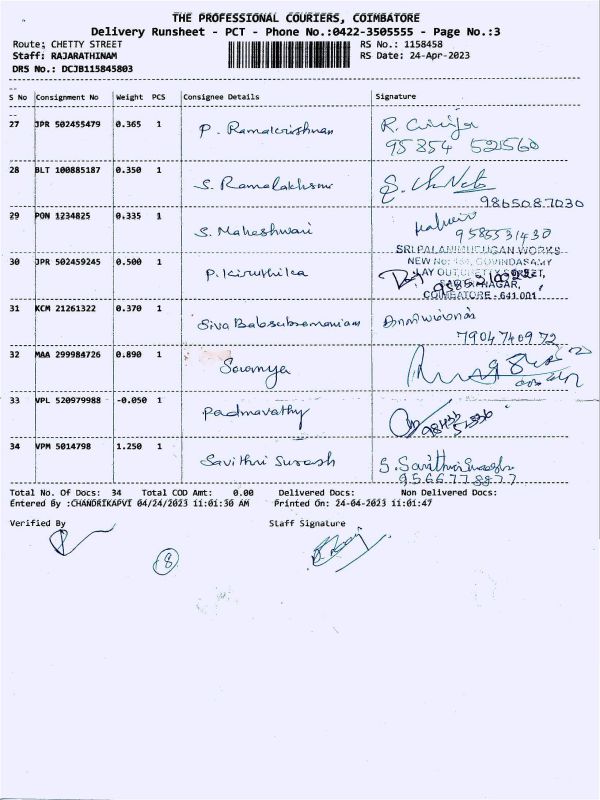 THE PROFESSIONAL COURIERS, COIMBATORE
Delivery Runsheet - PCT - Phone No.:0422-3505555 - Page No.:3
Route: CHETTY STREET RS No.: 1158458
Staff: RAJARATHINAM RS Date: 24-Apr-2023
DRS No.: DCJB115845803
S No Consignment No Weight PCS Consignee Details Signature
27 JPR 502455479 0.365 1 P. Ramakrishnan
95854 521560
28 BLT 100885187 0.350 1 S. Ramalakshmi
9865087030
29 PON 1234825 0.335 1 S. Maheshwari
9585531430
30 JPR 502459245 0.500 1 P. Kiruthika
SRI PALANIMURUGAN WORKS
GOVINDASAMY
LAY OUT, STREET,
NAGAR,
COIMBATORE - 641 001
31 KCM 21261322 0.370 1 Siva Balasubramaniam
7904740972
32 MAA 299984726 0.890 1 Saranya
33 VPL 520979988 -0.050 1 Padmavathy
34 VPM 5014798 1.250 1 Savithri Suresh S. Savithri Suresh
9566778877
Total No. Of Docs: 34 Total COD Amt: 0.00 Delivered Docs: Non Delivered Docs:
Entered By :CHANDRIKAPVT 04/24/2023 11:01:30 AM Printed On: 24-04-2023 11:01:47
Verified By Staff Signature
8